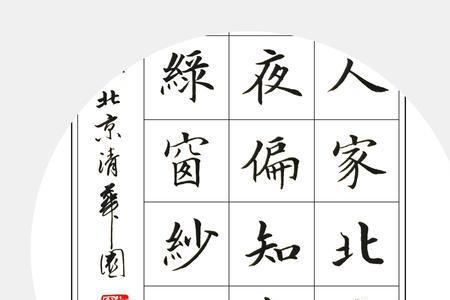 人家北
夜偏知
綠窗紗
北京清華園